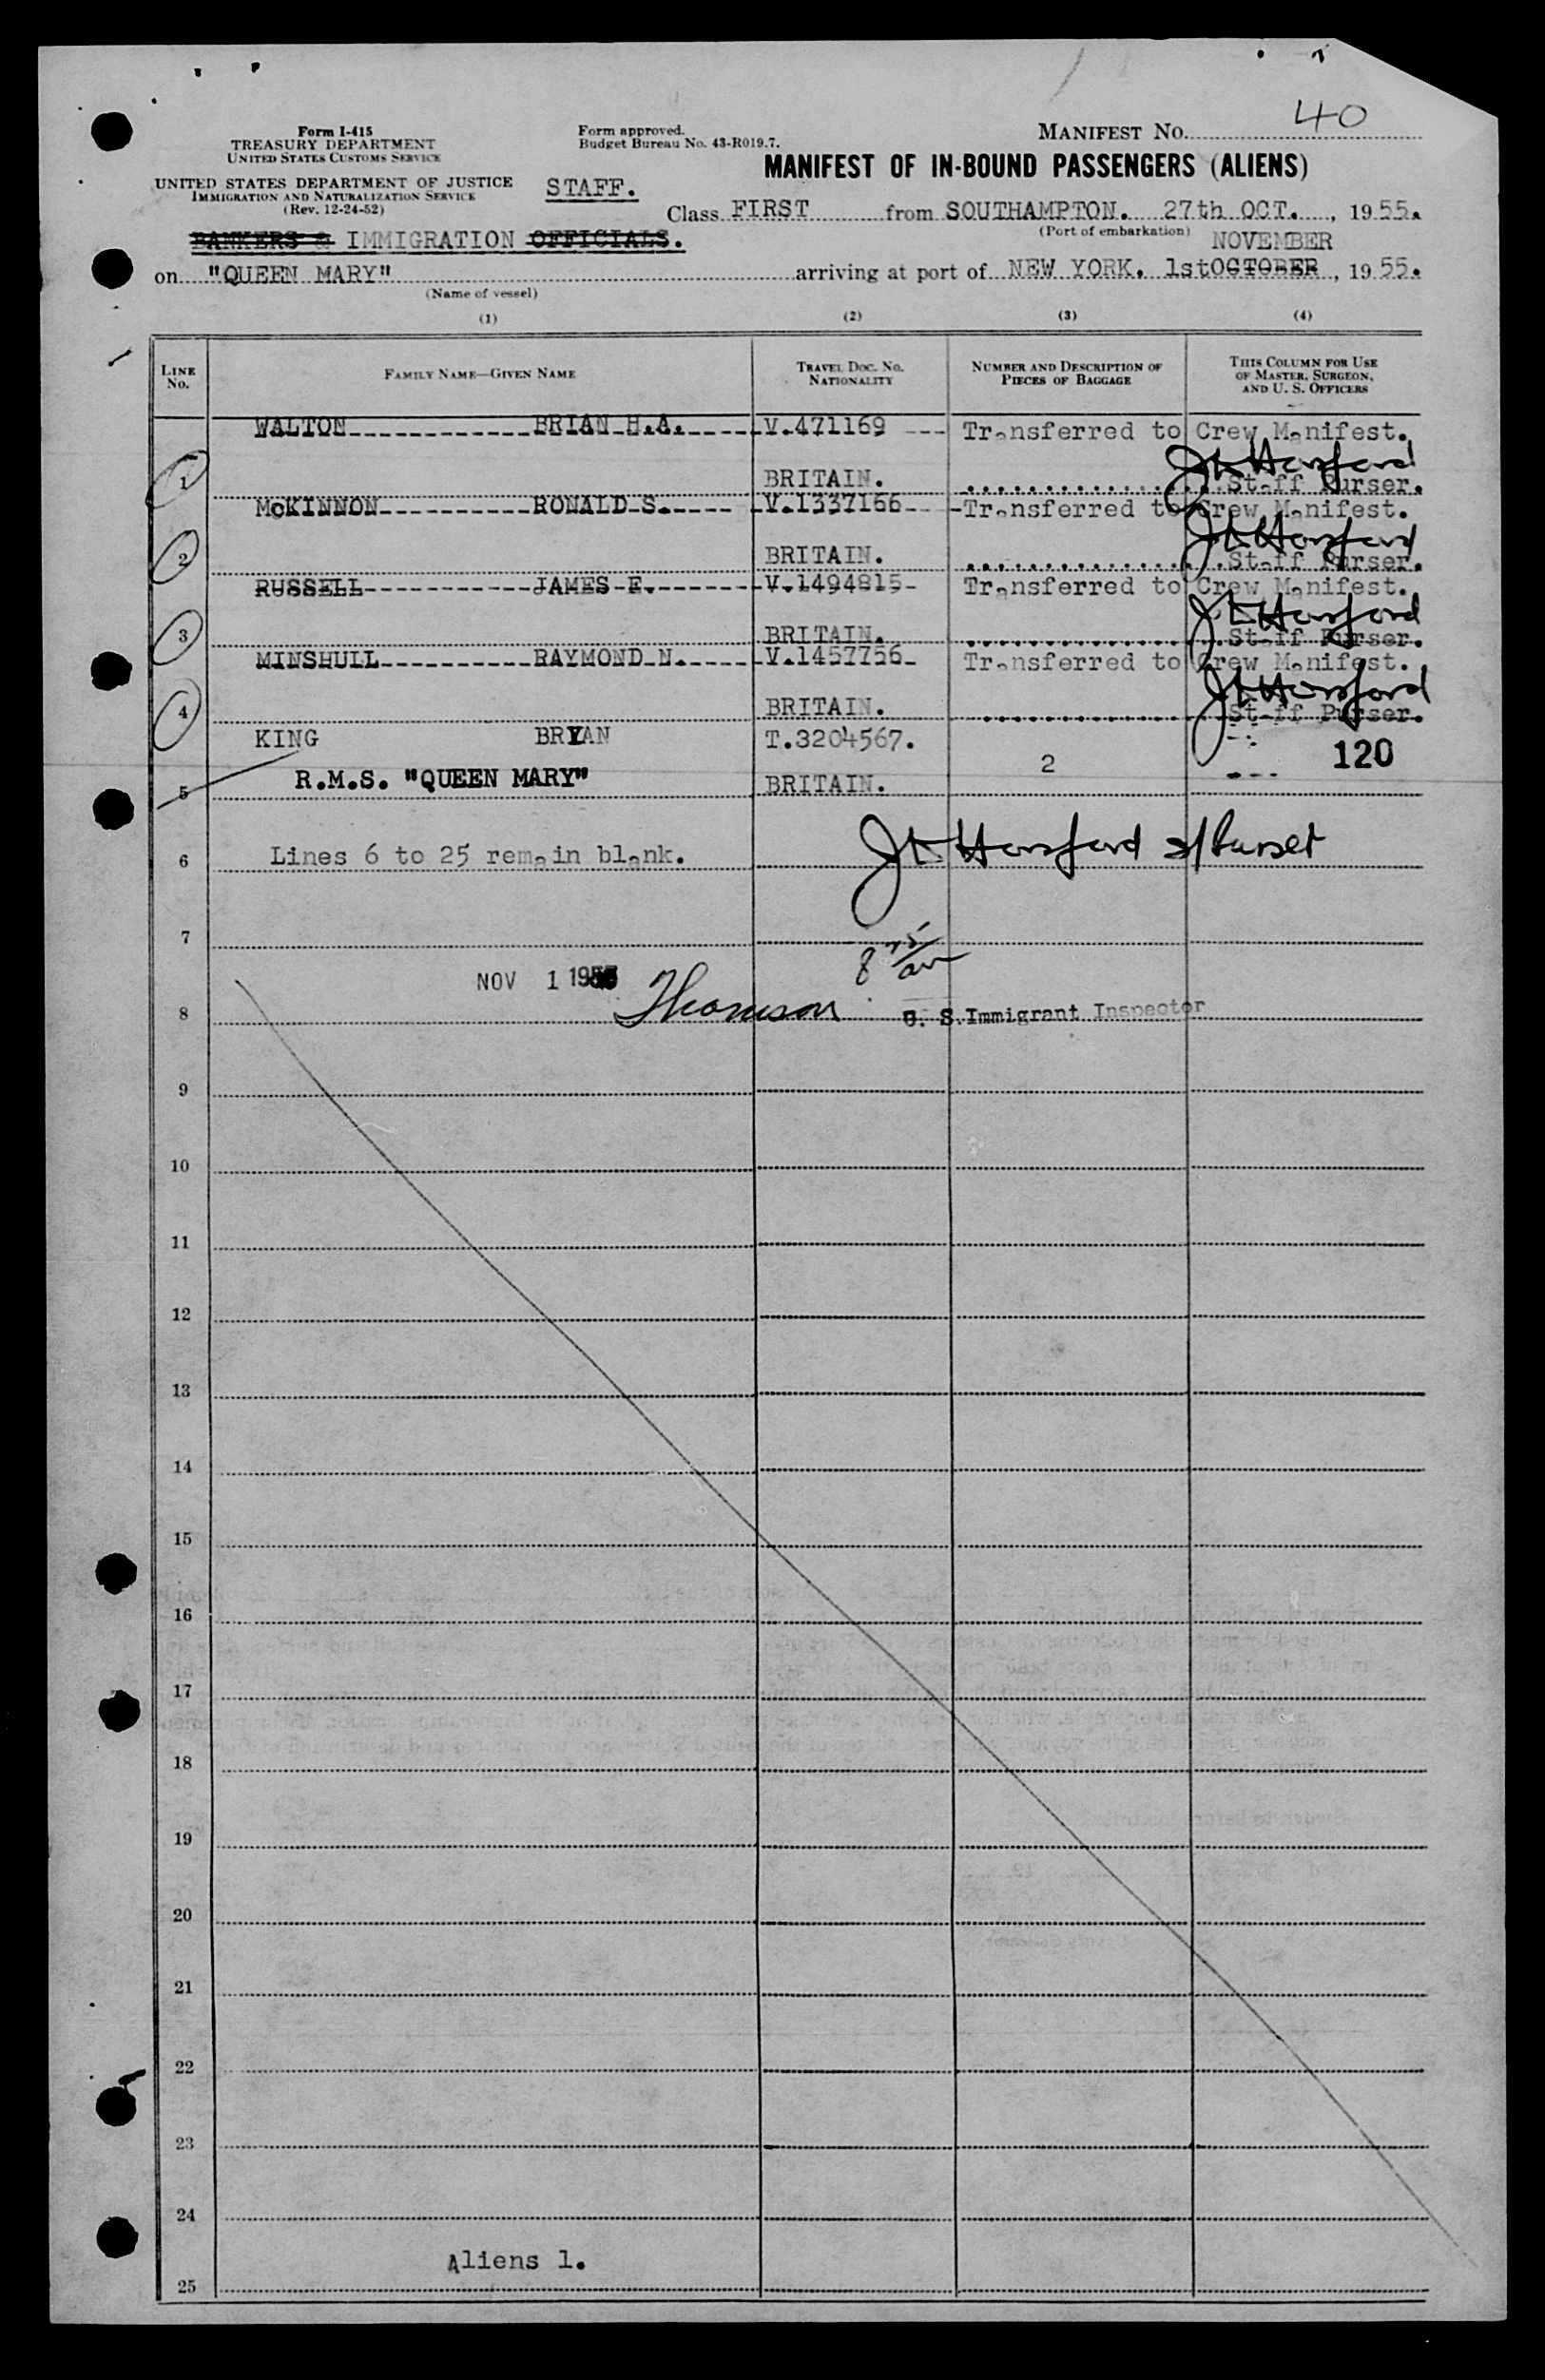 40
Form I-415
TREASURY DEPARTMENT
UNITED STATES CUSTOMS SERVICE
Form approved.
Budget Bureau No. 43-R019.7.
MANIFEST NO.
MANIFEST OF IN-BOUND PASSENGERS (ALIENS)
UNITED STATES DEPARTMENT OF JUSTICE
IMMIGRATION AND NATURALIZATION SERVICE
(Rev. 12-24-52)
STAFF.
Class FIRST from SOUTHAMPTON. 27th OCT., 1955.
(Port of embarkation)
BANKERS & IMMIGRATION OFFICIALS.
NOVEMBER
on "QUEEN MARY" arriving at port of NEW YORK. 1st OCTOBER, 1955.
(Name of vessel)
(1) (2) (3) (4)
LINE NO.
FAMILY NAME—GIVEN NAME
TRAVEL DOC. NO.
NATIONALITY
NUMBER AND DESCRIPTION OF
PIECES OF BAGGAGE
THIS COLUMN FOR USE
OF MASTER, SURGEON,
AND U. S. OFFICERS
WALTON BRIAN H.A. V.471169 Transferred to Crew Manifest.
1 BRITAIN. Staff Purser.
McKINNON RONALD S. V.1337166 Transferred to Crew Manifest.
2 BRITAIN. Staff Purser.
RUSSELL JAMES E. V.1494815 Transferred to Crew Manifest.
3 BRITAIN. Staff Purser.
MINSHULL RAYMOND N. V.1457756 Transferred to Crew Manifest.
4 BRITAIN. Staff Purser.
KING BRYAN T.3204567.
2 120
5 R.M.S. "QUEEN MARY" BRITAIN.
6 Lines 6 to 25 remain blank.
7
NOV 1 19
8 U. S. Immigrant Inspector
9
10
11
12
13
14
15
16
17
18
19
20
21
22
23
24
Aliens 1.
25